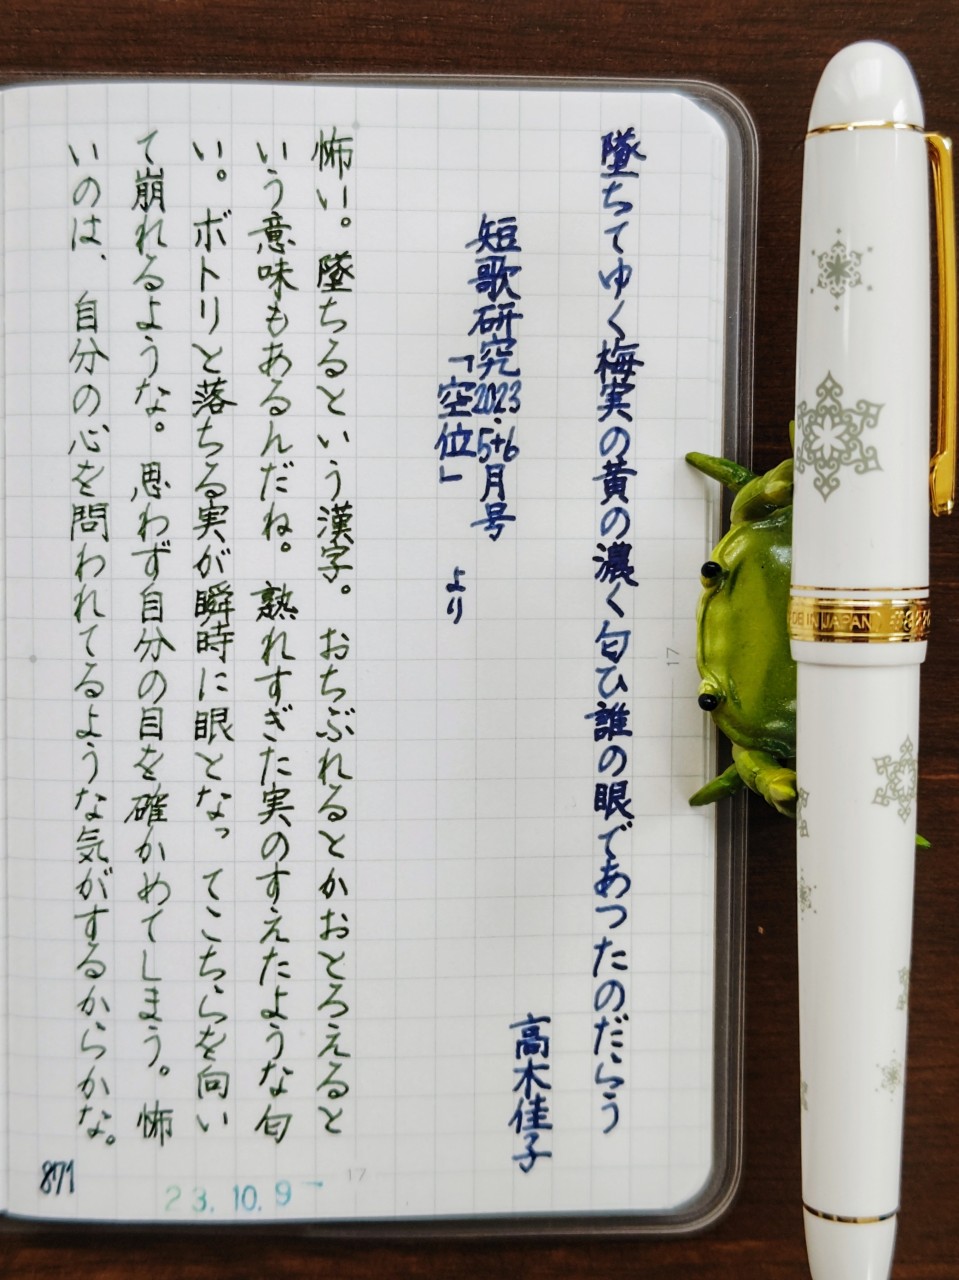 墜ちてゆく梅実の黄の濃く匂ひ誰の眼であつたのだらう
高木佳子
短歌研究2023.5+6月号
「空位」より
怖い。墜ちるという漢字。おちぶれるとかおとろえると
いう意味もあるんだね。熟れすぎた実のすえたような匂
い。ボトリと落ちる実が瞬時に眼となってこちらを向い
て崩れるような。思わず自分の目を確かめてしまう。怖
いのは、自分の心を問われてるような気がするからかな。
871
23.10.9-
17
17
MADE IN JAPAN